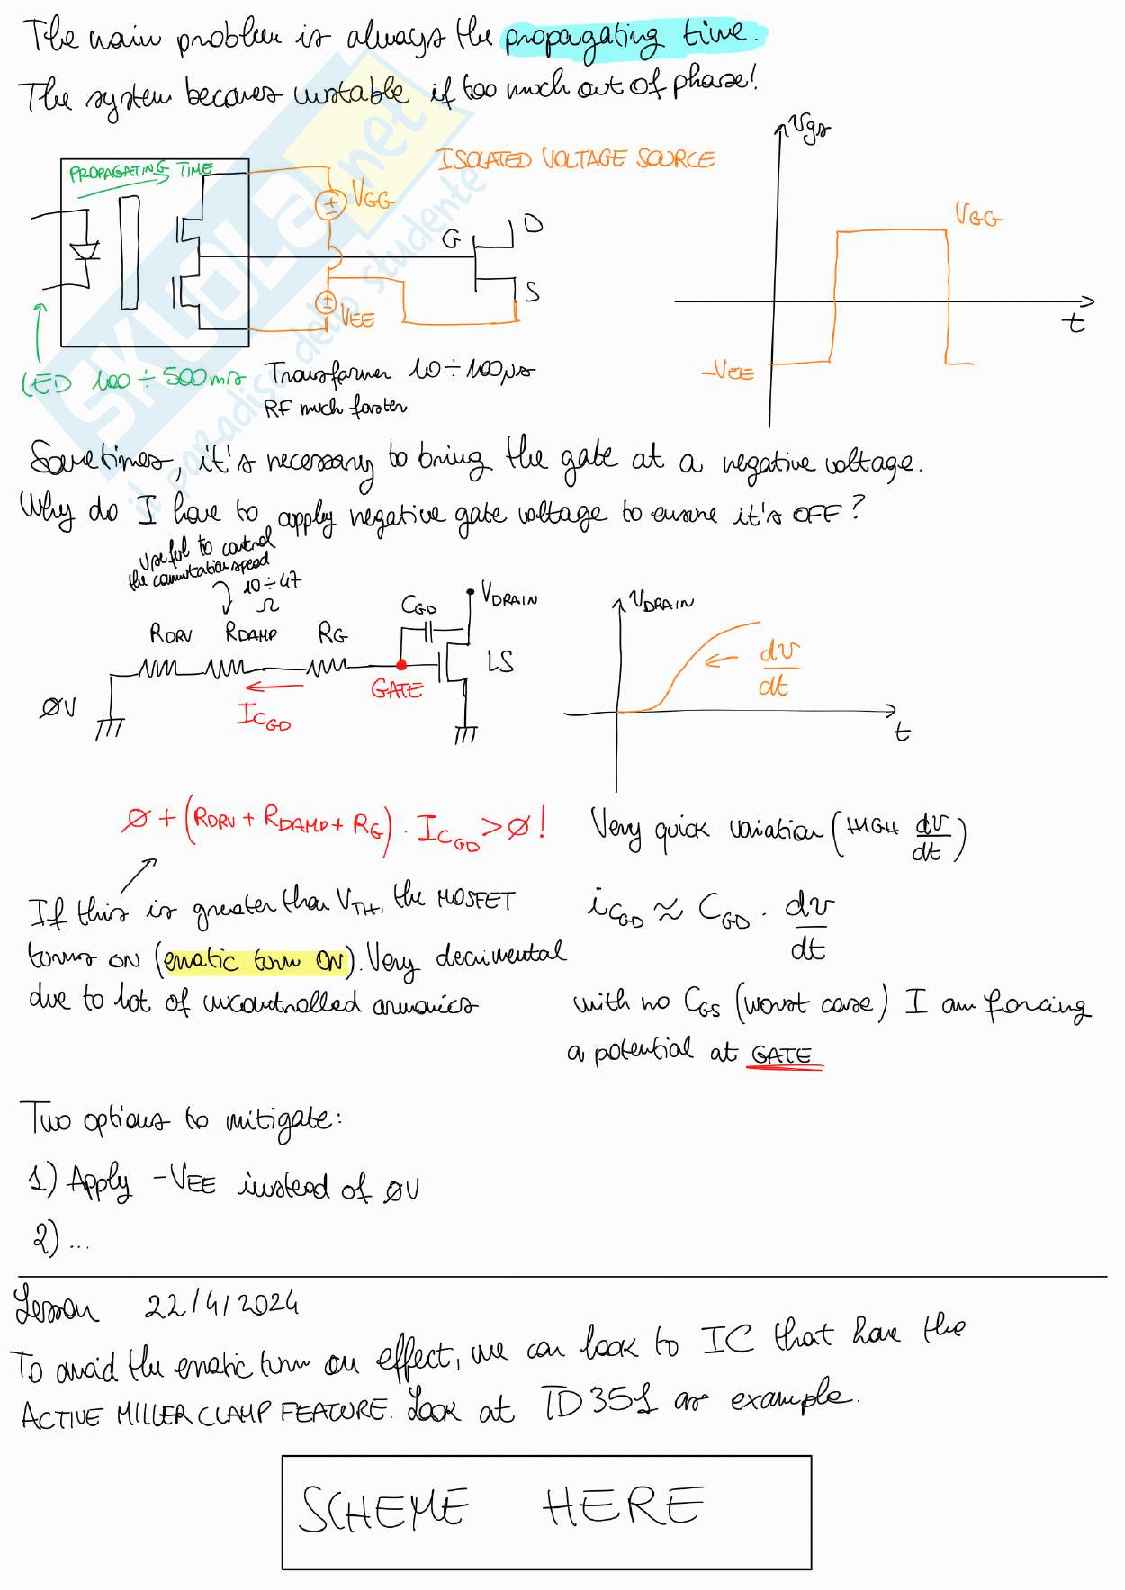 The main problem is always the propagating time.
The system becomes unstable if too much out of phase!
PROPAGATING TIME
ISOLATED VOLTAGE SOURCE
Vgs
VGG
VGG
G
D
S
VEE
-VEE
t
LED 100÷500ms
Transformer 10÷100μs
RF much faster
Sometimes, it's necessary to bring the gate at a negative voltage.
Why do I have to apply negative gate voltage to ensure it's OFF?
Useful to control
the commutation speed
10÷47
Ω
CGD
VDRAIN
VDRAIN
RDRV
RDAMP
RG
LS
dv
dt
GATE
ØV
ICGD
t
Ø + (RDRV + RDAMP + RG) · ICGD > Ø!
Very quick variation (HIGH dv/dt)
If this is greater than VTH, the MOSFET
turns on (erratic turn ON). Very decrimental
due to lot of uncontrolled armonics
iCGD ≈ CGD · dv/dt
with no CGS (worst case) I am forcing
a potential at GATE
Two options to mitigate:
1) Apply -VEE instead of ØV
2) ...
Lesson 22/4/2024
To avoid the erratic turn on effect, we can look to IC that have the
ACTIVE MILLER CLAMP FEATURE. Look at TD351 as example.
SCHEME HERE
SKUOLA.net
il paradiso dello studente